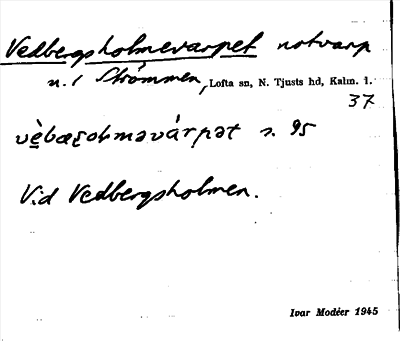 Vedbergsholmevarpet notvarp
n. i Strömmen, Lofta sn, N. Tjusts hd, Kalm. l.
37
s. 95
Vid Vedbergsholmen.
Ivar Modéer 1945